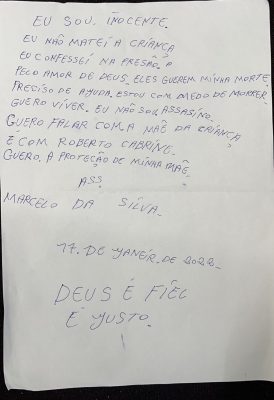 EU SOU. INOCENTE.
EU NÃO MATEI A CRIANÇA
EU CONFESSEI NA PRESÃO.
PELO AMOR DE DEUS. ELES QUEREM MINHA MORTE.
PRECISO DE AYUDA. ESTOU COM MEDO DE MORRER.
QUERO VIVER. EU NÃO SOU ASSASINO.
QUERO FALAR COM A MÃE DA CRIANÇA
É COM ROBERTO CABRINE.
QUERO. A PROTEÇÃO DE MINHA MÃE.
ASS
MARCELO DA SILVA.
17. DE YANEIR. DE 2022.
DEUS É FIEL
E YUSTO.